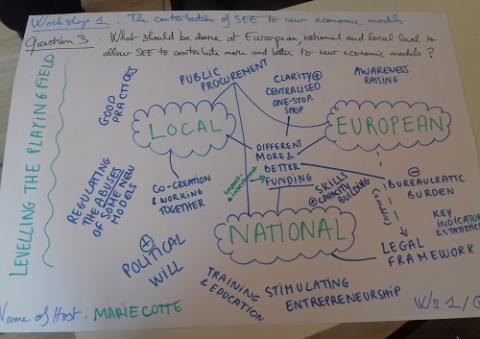 Workshop 1 : The contribution of SEE to new economic models
Question 3 : What should be done at European, national and local level to
allow SEE to contribute more and better to new economic models ?
LEVELLING THE PLAYING FIELD
GOOD
PRACTICES
PUBLIC
PROCUREMENT
CLARITY +
CENTRALISED
ONE-STOP-
SHOP
AWARENESS
RAISING
LOCAL
EUROPEAN
DIFFERENT
MORE &
BETTER
FUNDING
Impact
investment
REGULATING
THE ABUSES
OF SOME NEW
MODELS
CO-CREATION
& WORKING
TOGETHER
SKILLS
CAPACITY
BUILDING
BUREAUCRATIC
BURDEN
KEY
INDICATOR
& STATISTICS
NATIONAL
LEGAL
FRAMEWORK
POLITICAL
WILL
TRAINING
& EDUCATION
STIMULATING
ENTREPRENEURSHIP
Name of Host : MARIE COTTE
W/s 1/